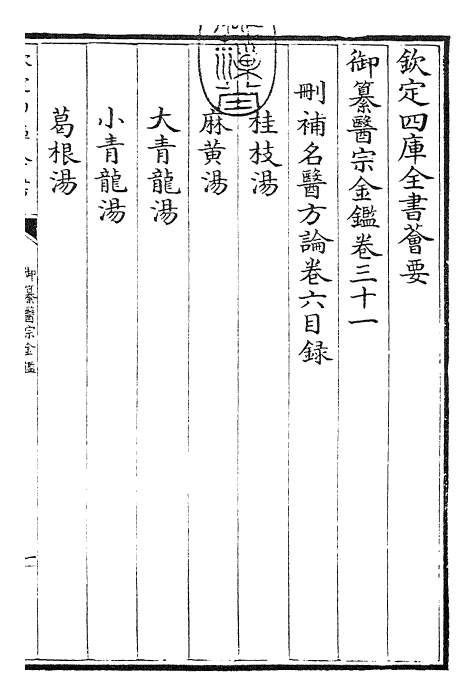 欽定四庫全書薈要
御纂醫宗金鑑卷三十一
刪補名醫方論卷六目録
桂枝湯
麻黄湯
大青龍湯
小青龍湯
葛根湯
御纂醫宗金鑑
一